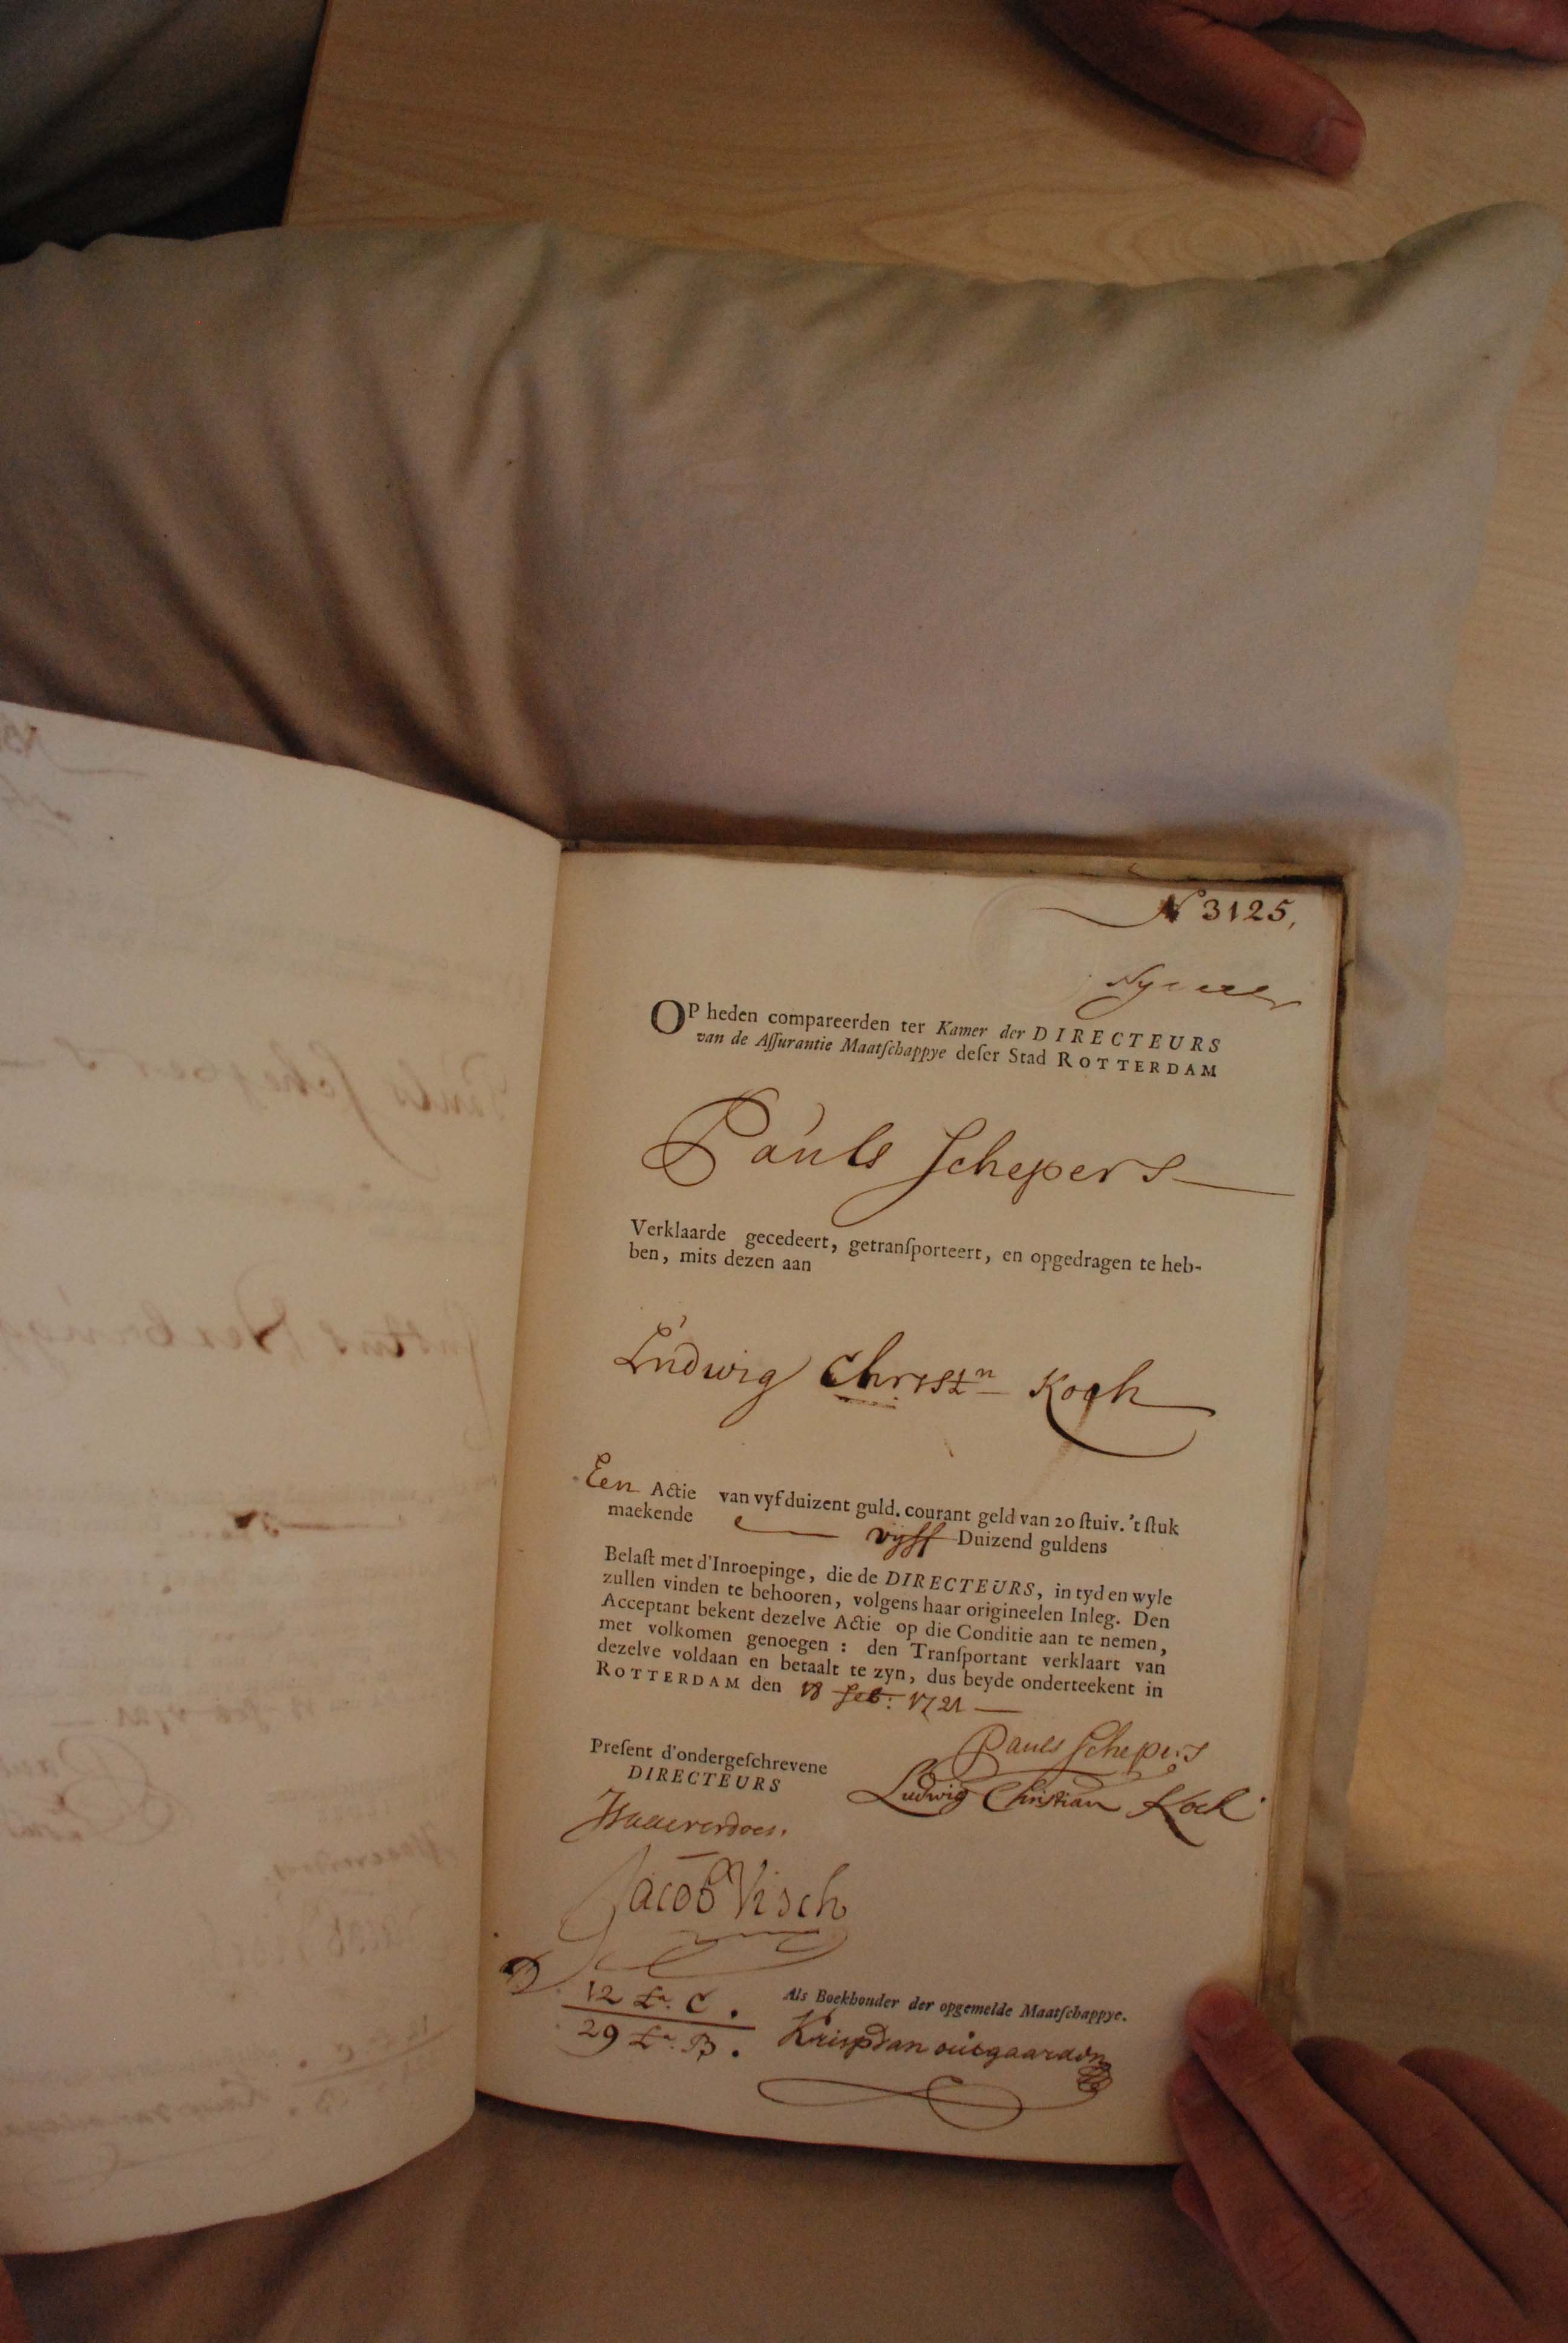 N 3125,
OP heden compareerden ter Kamer der DIRECTEURS
van de Aſſurantie Maatſchappye deſer Stad ROTTERDAM
Pauls Schepers
Verklaarde gecedeert, getranſporteert, en opgedragen te heb-
ben, mits dezen aan
Ludwig Christn Koch
Een Actie van vyf duizent guld. courant geld van 20 ſtuiv. 't ſtuk
maekende vyff Duizend guldens
Belaſt met d'Inroepinge, die de DIRECTEURS, in tyd en wyle
zullen vinden te behooren, volgens haar origineelen Inleg. Den
Acceptant bekent dezelve Actie op die Conditie aan te nemen,
met volkomen genoegen : den Tranſportant verklaart van
dezelve voldaan en betaalt te zyn, dus beyde onderteekent in
ROTTERDAM den 18 feb: 1721
Pauls Schepers
Ludwig Christian Koch
Preſent d'ondergeſchrevene
DIRECTEURS
Jacob Visch
12 Lr. C.
29 Lr. B.
Als Boekhouder der opgemelde Maatſchappye.